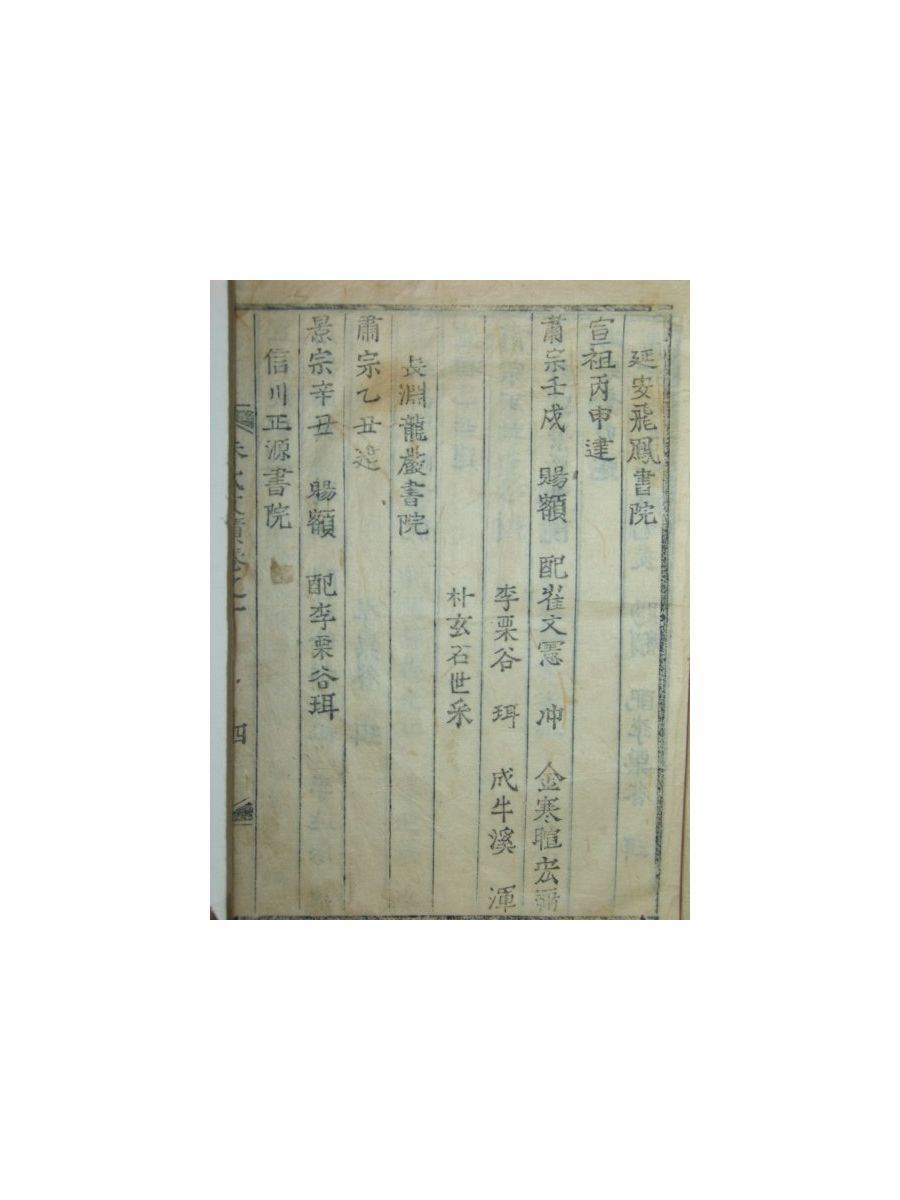 延安飛鳳書院
宣祖丙申建
肅宗壬戌 賜額 配崔文憲 冲 金寒暄宏弼
李栗谷 珥 成牛溪 渾
朴玄石世采
長淵龍巖書院
肅宗乙丑建
景宗辛丑 賜額 配李栗谷珥
信川正源書院
四